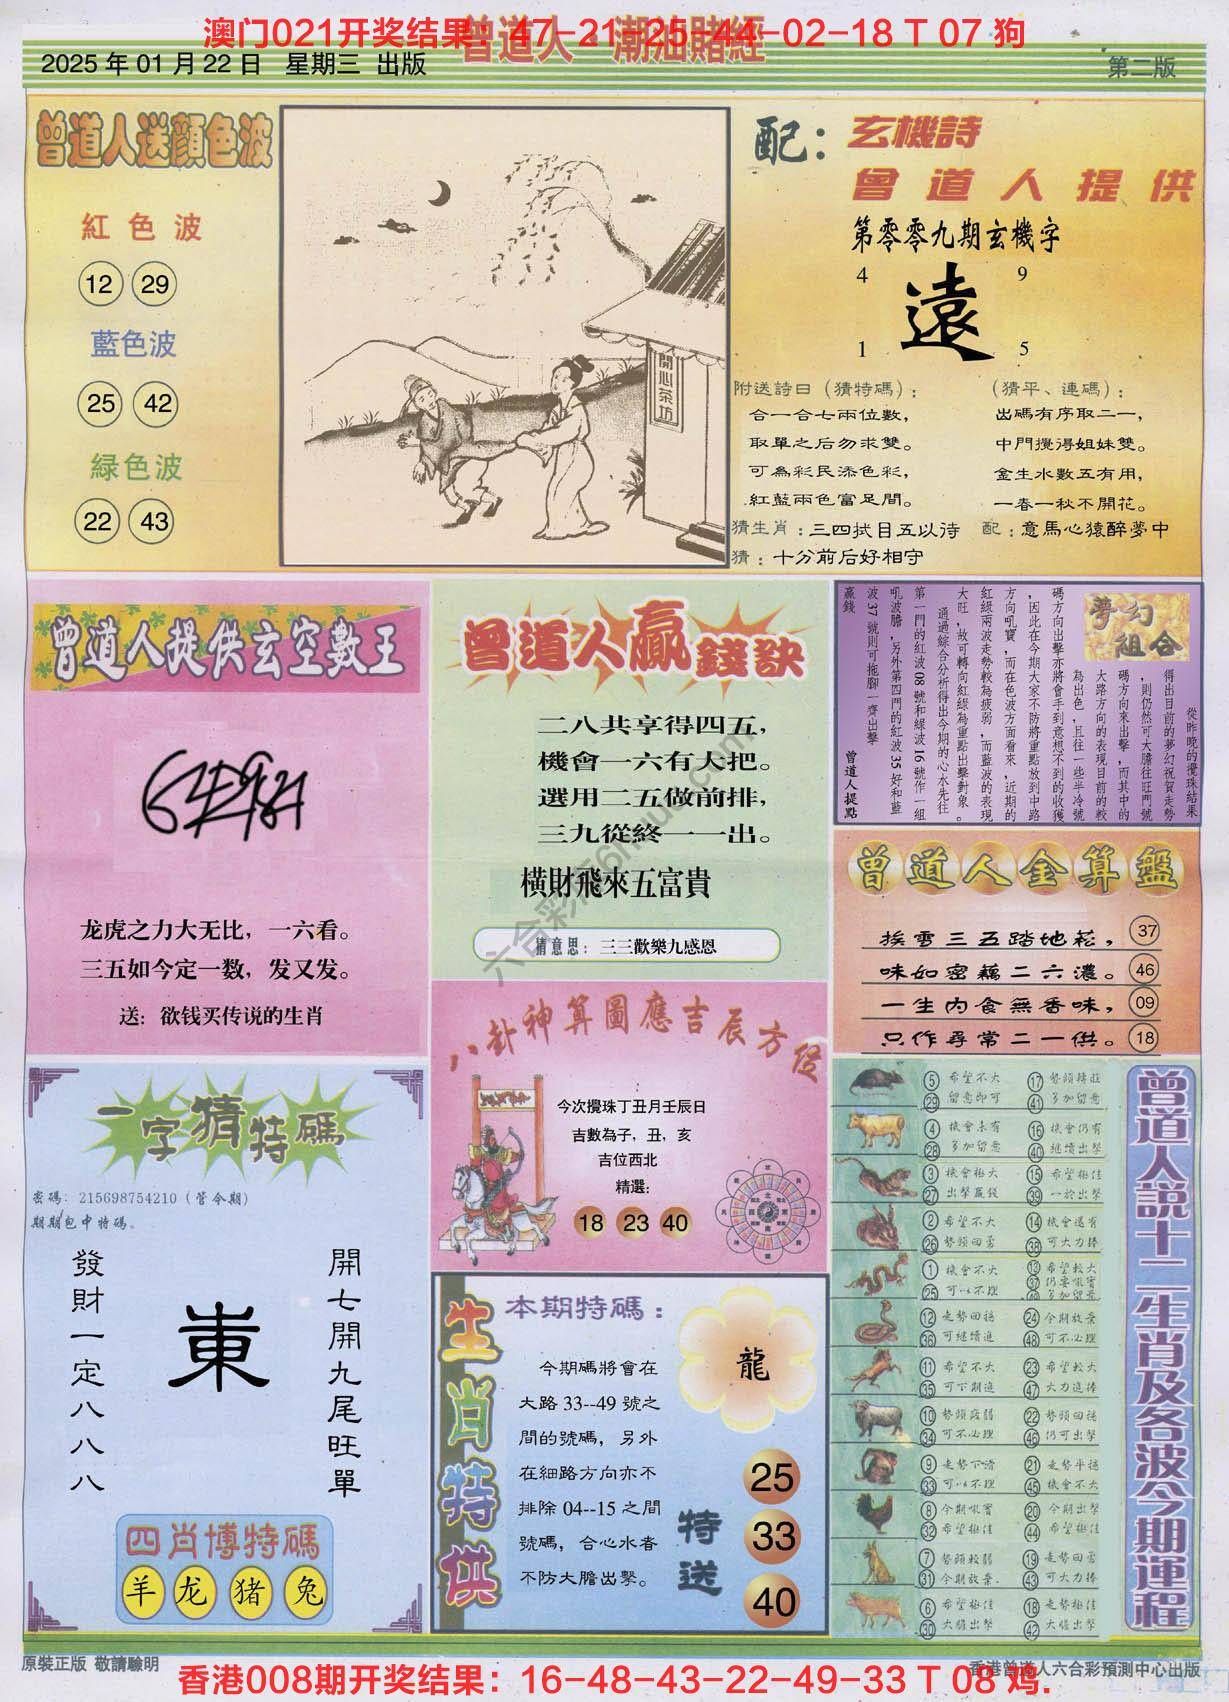 澳门021开奖结果：47-21-25-44-02-18 T 07 狗
曾道人 潮汕賭經
2025 年 01 月 22 日 星期三 出版
第二版
曾道人送顏色波
紅色波
12 29
藍色波
25 42
緑色波
22 43
開心茶坊
配：玄機詩
曾道人提供
第零零九期玄機字
4 9
遠
1 5
附送詩曰（猜特碼）：
合一合七兩位數，
取單之后勿求雙。
可為彩民添色彩，
紅藍兩色富足間。
（猜平、連碼）：
出碼有序取二一，
中門攪得姐妹雙。
金生水數五有用，
一春一秋不開花。
猜生肖：三四拭目五以待
配：意馬心猿醉夢中
猜：十分前后好相守
曾道人提供玄空數王
龙虎之力大无比，一六看。
三五如今定一数，发又发。
送：欲钱买传说的生肖
曾道人贏錢訣
二八共享得四五，
機會一六有大把。
選用二五做前排，
三九從終一一出。
橫財飛來五富貴
猜意思：三三歡樂九感恩
夢幻組合
從昨晚的攪珠結果
得出目前的夢幻祝賀走勢
，則仍然可大膽往旺門號
碼方向來出擊，而其中的
大路方向的表現目前的較
為出色，且往一些半冷號
碼方向出擊亦將會手到意想不到的收獲
，因此在今期大家不防將重點放到中路
方向吼寶，而在色波方面看來，近期的
紅綠兩波走勢較為疲弱，而藍波的表現
大旺，故可轉向紅綠為重點出擊對象。
通過綜合分析得出今期的心水先往
第一門的紅波 08 號和緑波 16 號作一組
吼波膽，另外第四門的紅波 35 好和藍
波 37 號則可拖腳一齊出擊
贏錢
曾道人提點
曾道人金算盤
挨雪三五踏地菘， 37
味如蜜藕二六濃。 46
一生內食無香味， 09
只作尋常二一供。 18
八卦神算圖應吉辰方位
今次攪珠丁丑月壬辰日
吉數為子，丑，亥
吉位西北
精選：
18 23 40
一字猜特碼
密碼：215698754210（管今期）
期期包中特碼。
發財一定八八八
東
開七開九尾旺單
四肖博特碼
羊 龙 猪 兔
生肖特供
本期特碼：
今期碼將會在
大路 33--49 號之
間的號碼，另外
在細路方向亦不
排除 04--15 之間
號碼，合心水者
不防大膽出擊。
龍
特送
25
33
40
曾道人說十二生肖及各波今期運程
5 希望不大
29 留意即可
41 多加留意
4 機會未有
28 多加留意
16 機會仍有
40 継續出擊
3 機會極大
27 出擊贏錢
15 希望極佳
39 一於出擊
2 希望不大
26 勢頭回勇
14 機會還有
38 可大力捧
1 機會不大
25 可以不理
13 希望較大
12 走勢回穩
36 可継續進
24 今期放棄
48 可不必理
11 希望不大
35 可下期進
23 希望較大
47 大力追捧
10 勢頭疲弱
34 可不必理
22 勢頭回穩
46 仍可出擊
9 走勢下滑
33 可以不理
21 走勢平穩
45 機會不大
8 今期吼寶
32 希望極佳
20 今期出擊
44 希望極佳
7 勢頭較弱
31 今期放棄.
19 走勢回勇
43 可大力捧
6 希望極佳
30 大膽出擊
18 走勢極佳
42 大膽出擊
原裝正版 敬請驗明
香港曾道人六合彩預測中心出版
香港008期开奖结果：16-48-43-22-49-33 T 08 鸡.